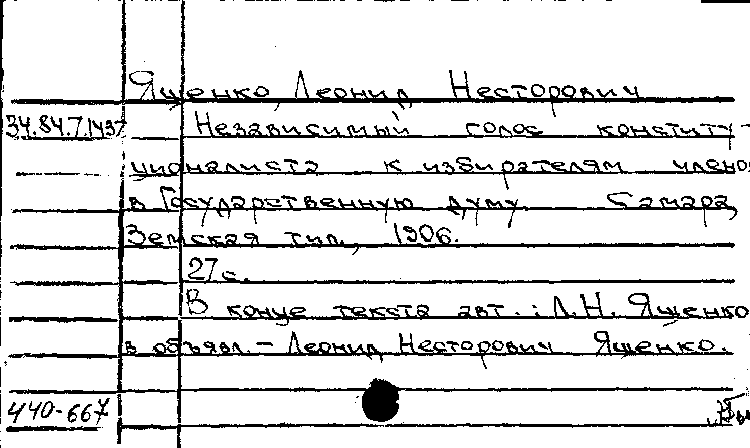 Ященко, Леонид Несторович
34.84.7.1437 Независимый голос конститу-
ционалиста к избирателям члено
в Государственную думу. Самара,
Земская тип., 1906.
27 с.
В конце текста авт.: Л.Н. Ященко
в объявл. – Леонид Несторович Ященко.
440-667